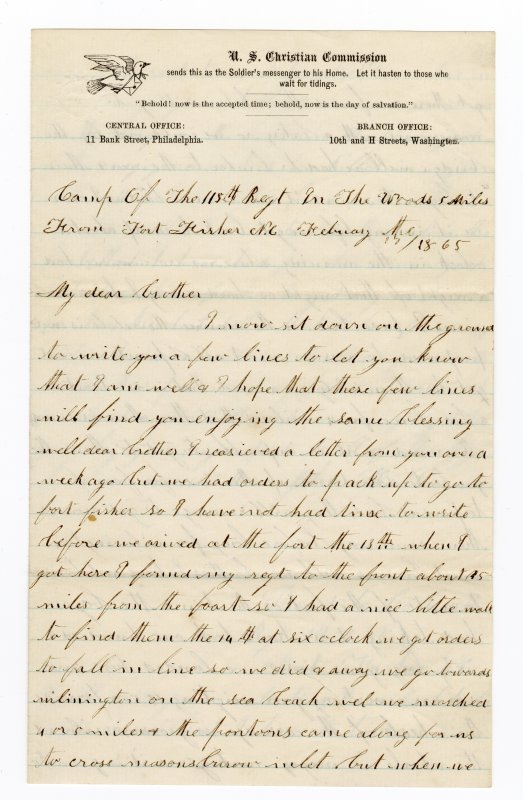 U. S. Christian Commission
sends this as the Soldier's messenger to his Home. Let it hasten to those who
wait for tidings.
"Behold! now is the accepted time; behold, now is the day of salvation."
CENTRAL OFFICE:
11 Bank Street, Philadelphia.
BRANCH OFFICE:
10th and H Streets, Washington.
Camp Of The 118th Regt In The Woods 5 Miles
From Fort Fisher N.C Febuay the
17/1865
My dear brother
I now sit down on the ground
to write you a few lines to let you know
that I am well & I hope that these few lines
will find you enjoying the same blessing
well dear brother I reasieved a letter from you over a
week ago but we had orders to pack up to go to
fort fisher so I have not had time to write
before we arived at the fort the 13th when I
got here I found my regt to the front about
miles from the foart so I had a nice little walk
to find them the 14th at six oclock we got orders
to fall in line so we did & away we go towards
wilimington on the sea beach wel we marched
4 or 5 miles & the pontoons came along for us
to cross masons burow inlet but when we